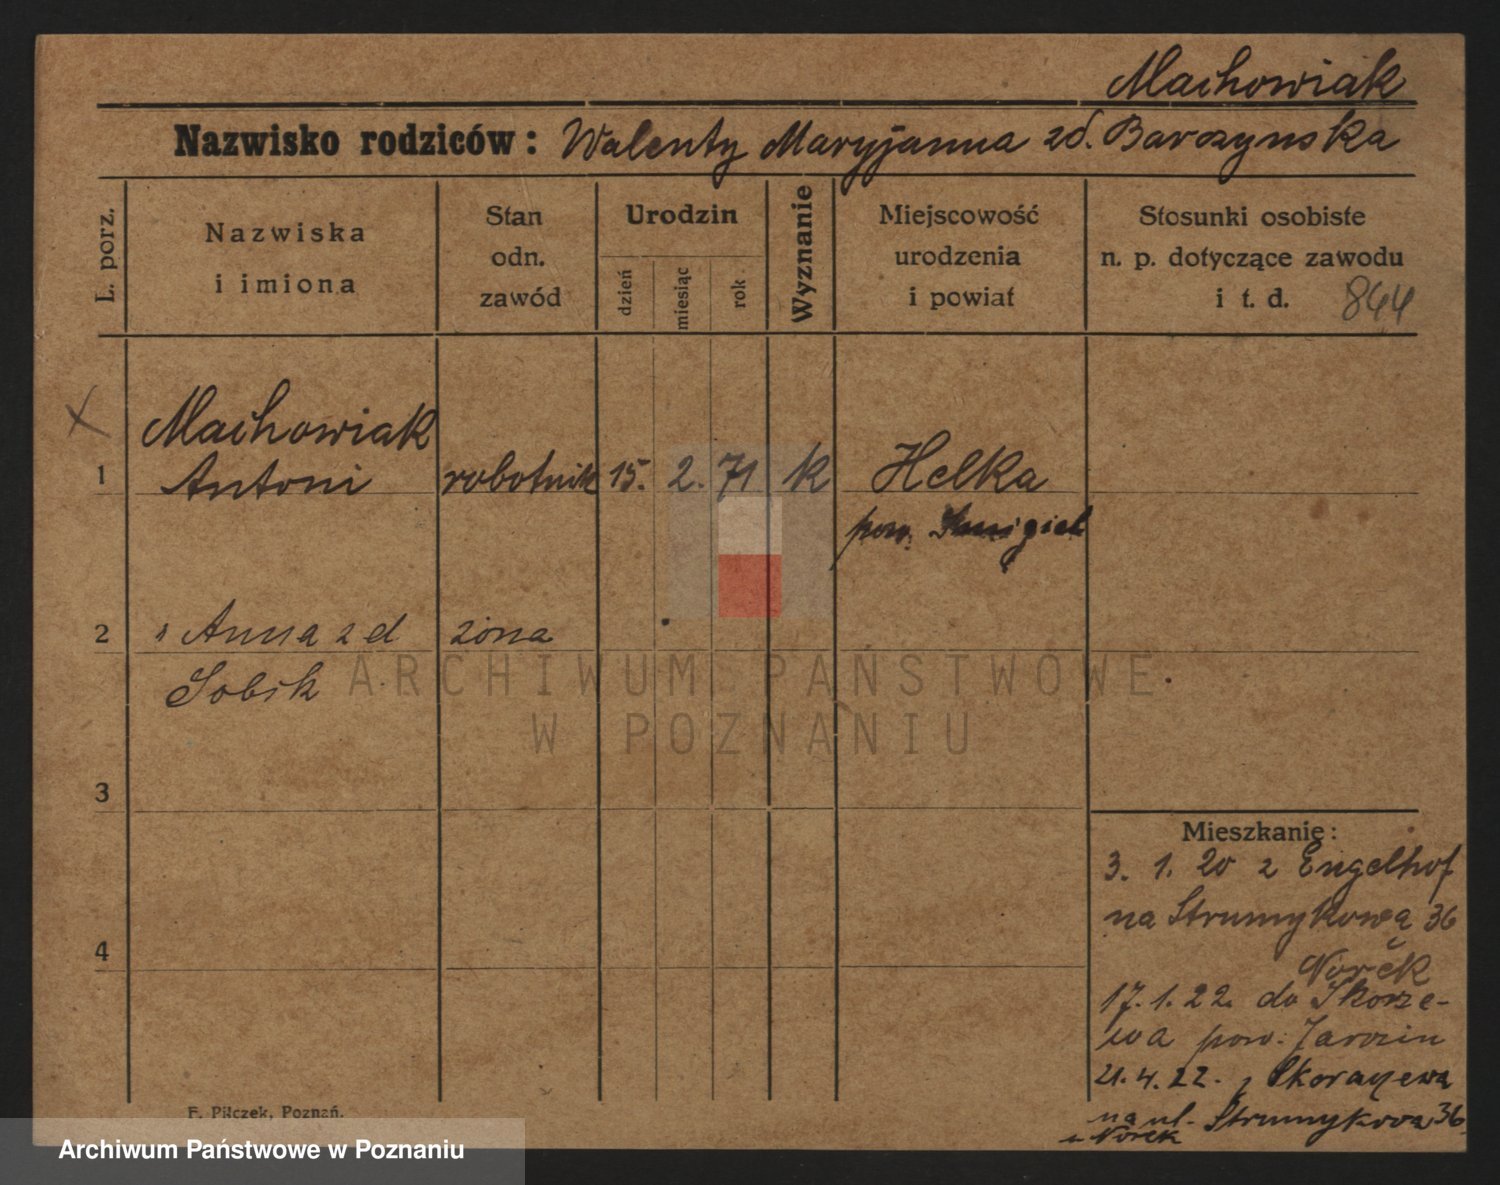 Machowiak
Nazwisko rodziców: Walenty Maryjanna zd. Barszynska
L. porz.
Nazwiska
i imiona
Stan
odn.
zawód
Urodzin
dzień
miesiąc
rok
Wyznanie
Miejscowość
urodzenia
i powiat
Stosunki osobiste
n. p. dotyczące zawodu
i t. d. 844
Machowiak
1 Antoni robotnik 15. 2. 71 k Helka
pow. Smigiel
2 " Anna zd żona
Sobik
ARCHIWUM PAŃSTWOWE
W POZNANIU
3
Mieszkanie:
3. 1. 20 z Engelhof
na Strumykową 36
Norek
4
17.1.22. do Skorze-
wa pow. Jarocin
21.4.22. z
na ul. Strumykowa 36
u Norek
F. Pilczek, Poznań.
Archiwum Państwowe w Poznaniu